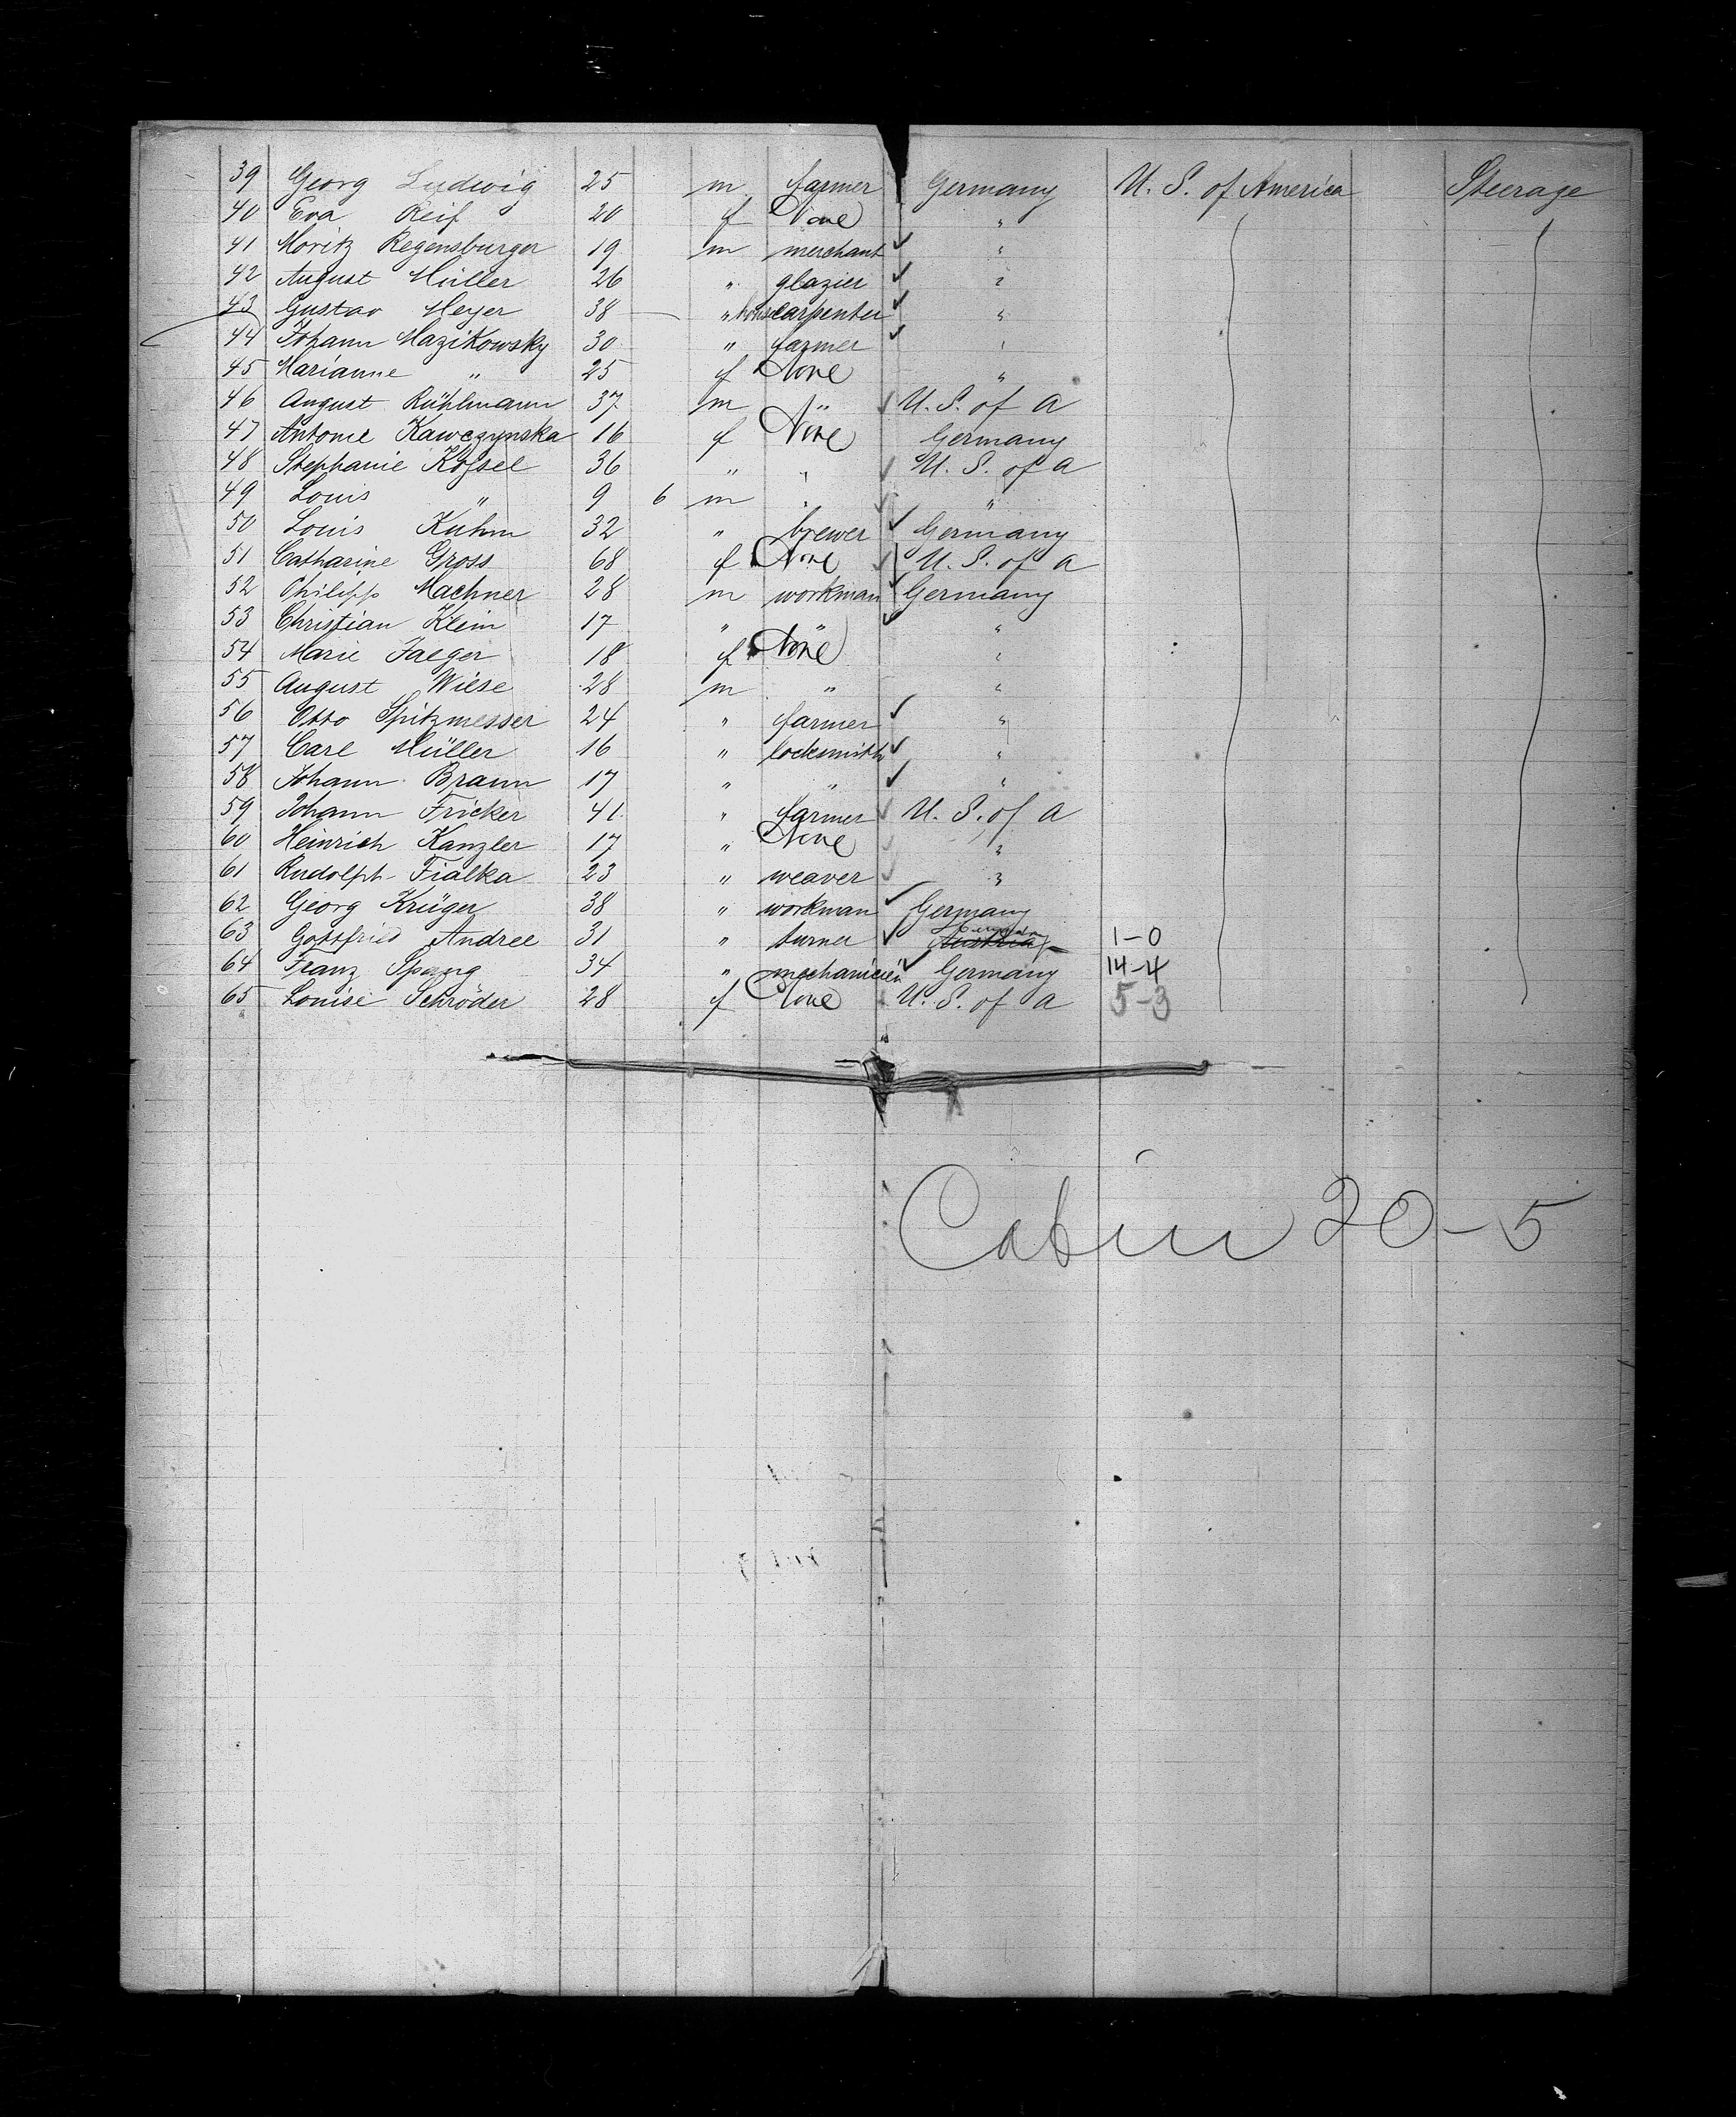 39 Georg Ludwig 25 m farmer Germany U. S. of America Steerage
40 Eva Reif 20 f None "
41 Moritz Regensburger 19 m merchant ✓ "
42 August Müller 26 " glazier ✓ "
43 Gustav Meyer 38 " house carpenter ✓ "
44 Johann Mazikowsky 30 " farmer ✓ "
45 Marianne " 25 f None "
46 August Rühlmann 37 m " ✓ U. S. of A
47 Antonie Kawczynska 16 f None Germany
48 Stephanie Kossel 36 " " ✓ U. S. of A
49 Louis " 9 6 m " ✓ "
50 Louis Kuhm 32 " brewer ✓ Germany
51 Catharine Gross 68 f None ✓ U. S. of A
52 Philipp Machner 28 m workman ✓ Germany
53 Christian Klein 17 " " ✓ "
54 Marie Jaeger 18 f None "
55 August Wiese 28 m " "
56 Otto Spitzmesser 24 " farmer ✓ "
57 Carl Müller 16 " locksmith ✓ "
58 Johann Braun 17 " " ✓ "
59 Johann Fricker 41 " farmer ✓ U. S. of A
60 Heinrich Kanzler 17 " None ✓ "
61 Rudolph Fialka 23 " weaver ✓ "
62 Georg Krüger 38 " workman ✓ Germany
63 Gottfried Andree 31 " turner ✓ Austria 1-0
64 Franz Spang 34 " mechanicien ✓ Germany 14-4
65 Louise Schröder 28 f None U. S. of A 5-3
Cabin 20-5